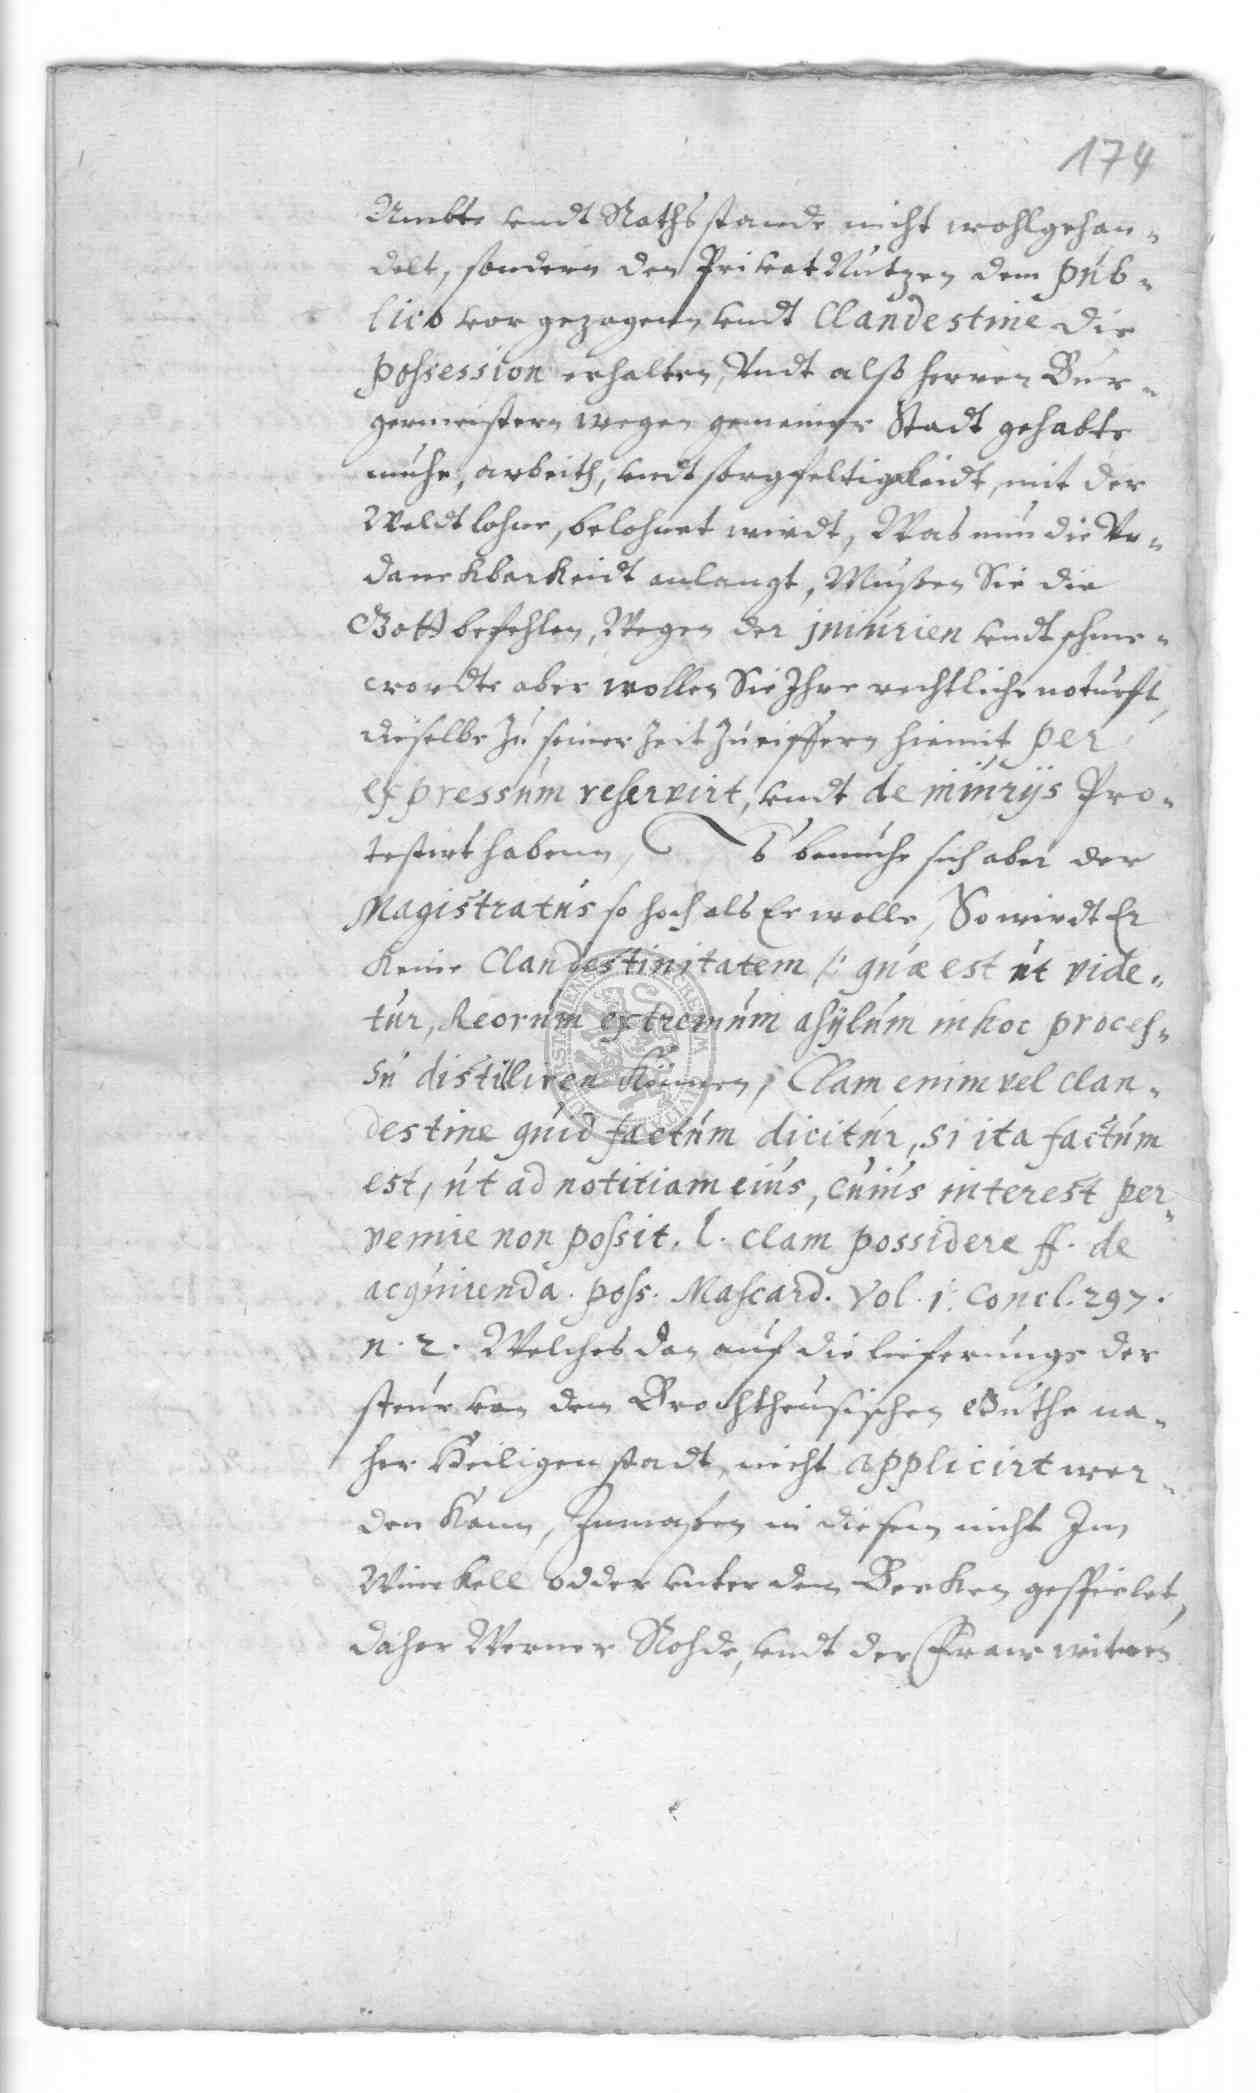 174
Ambts vndt Rathsstande nicht wohlgehan-
delt, sondern den PrivatNutzen dem pub-
lico vor gezogenn vndt Clandestine die
possession erhalten, Vndt also herren Bur-
germeistern wegen gemeiner Stadt gehabte
muhe, arbeith, vndt sorgfeltigkeidt, mit der
Weldt lohne, belohnet wirdt, Was nun die Vn-
danckbarkeidt anlangt, Mußen Sie die
Gott befehlen, Wegen der iniurien vndt schme-
wordte aber wollen Sie Ihre rechtliche noturft,
dieselbe zu seiner Zeit zu eiffern hiemit per
expressum reservirt, vndt de iniurijs Pro-
testirt habenn, Es bemuhe sich aber der
Magistratus so hoch als Er wolle, So wirdt Er
keine Clandestinitatem /: quæ est ut vide-
tur, Reorum extremum asÿlum in hoc proces-
su distilliren können, Clam enim vel clan-
destine quid factum dicitur, si ita factum
est, ut ad notitiam eius, cuius interest per-
venire non possit. l. clam possidere ff. de
acquirenda. poss. Mascard. Vol. 1. Concl. 297.
n. 2. Welches dan auf die lieferunge der
steur von dem Brochtheusischen Guthe na-
her Heiligenstadt, nicht applicirt wer-
den kann, Inmaßen in diesem nicht Im
Winckell odder vnter den Becken gespielet,
daher Werner Rohde, vndt der Fraw witwen